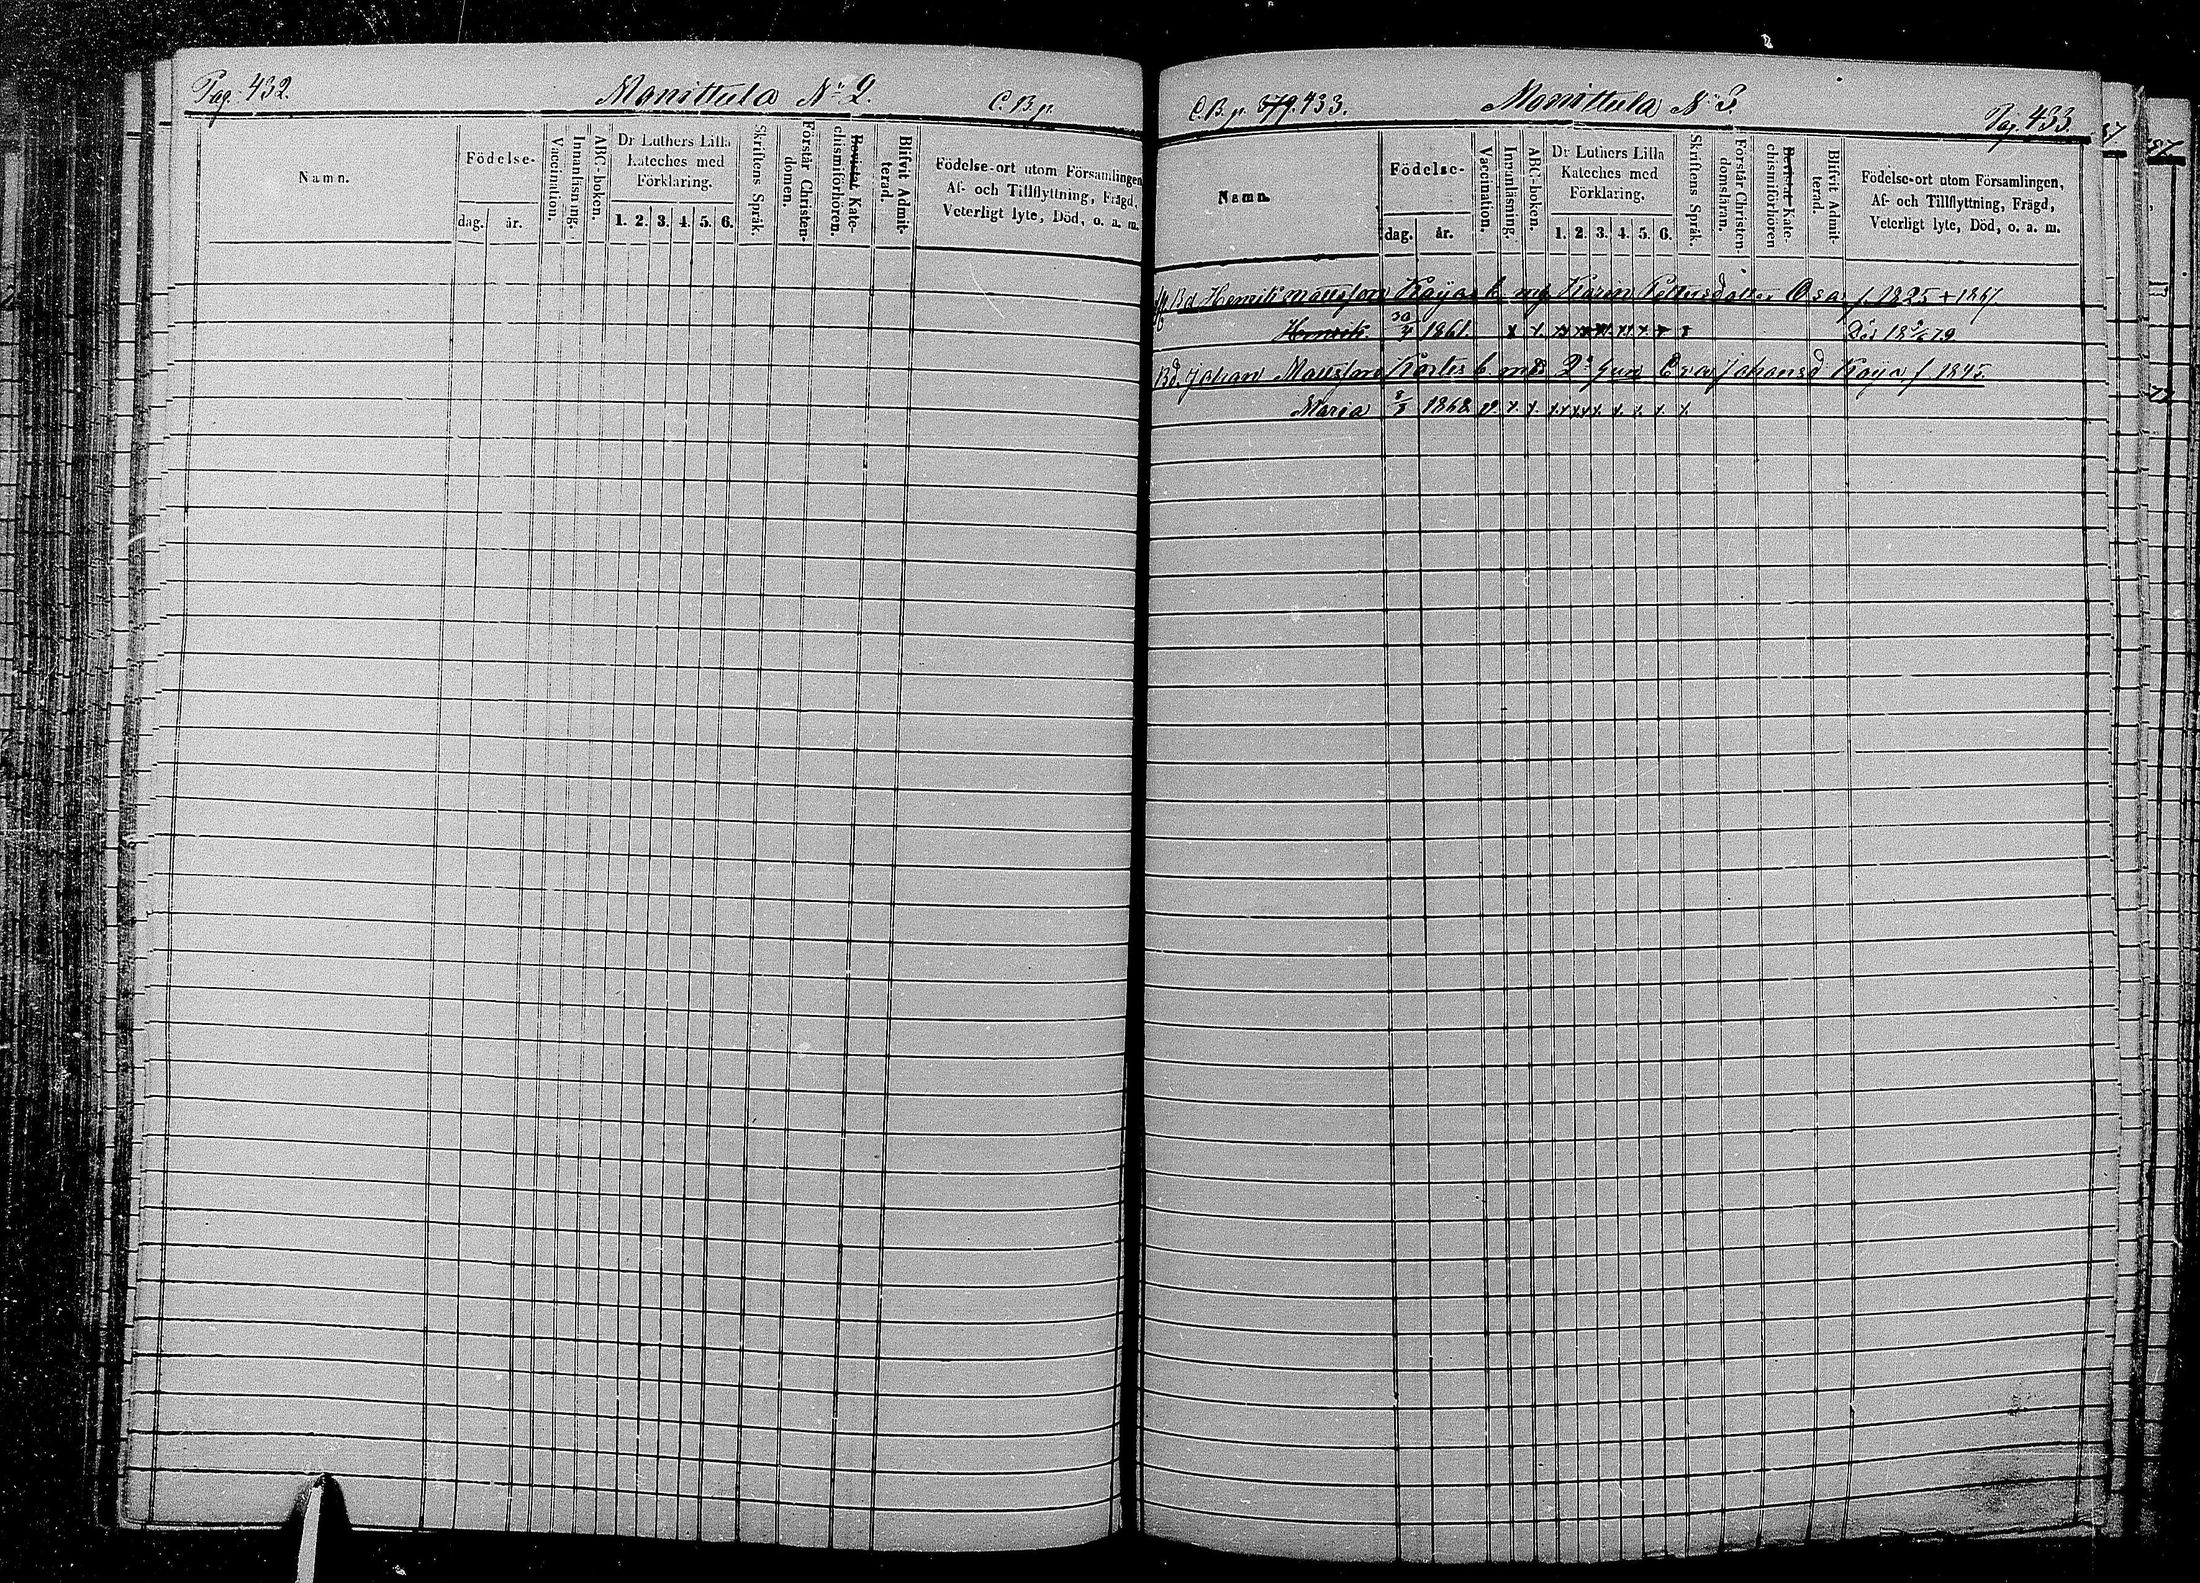 Pag. 432.
Monittula No 2.
C. B. p.
Namn.
Födelse-
dag.
år.
Vaccination.
Innanläsning.
ABC-boken.
Dr Luthers Lilla
Kateches med
Förklaring.
1. 2. 3. 4. 5. 6.
Skriftens Språk.
Förstår Christen-
domen.
Kate-
chismiförhören.
Blifvit Admit-
terad.
Födelse-ort utom Församlingen,
Af- och Tillflyttning, Frägd,
Veterligt lyte, Död, o. a. m.
C. B. p. 379. 433.
Monittula No 3.
Pag. 433.
Namn.
Födelse-
dag.
år.
Vaccination.
Innanläsning.
ABC-boken.
Dr Luthers Lilla
Kateches med
Förklaring.
1. 2. 3. 4. 5. 6.
Skriftens Språk.
Förstår Christen-
domsläran.
Kate-
chismiförhören
Blifvit Admit-
terad.
Födelse-ort utom Församlingen,
Af- och Tillflyttning, Frägd,
Veterligt lyte, Död, o. a. m.
Bd Henrik Mattsson Karin f. 1825 + 1867
Henrik. 30/4 1861. Död 18 79
Bd. Johan Mattsson Eva Johansd f 1845
Maria 1868 v